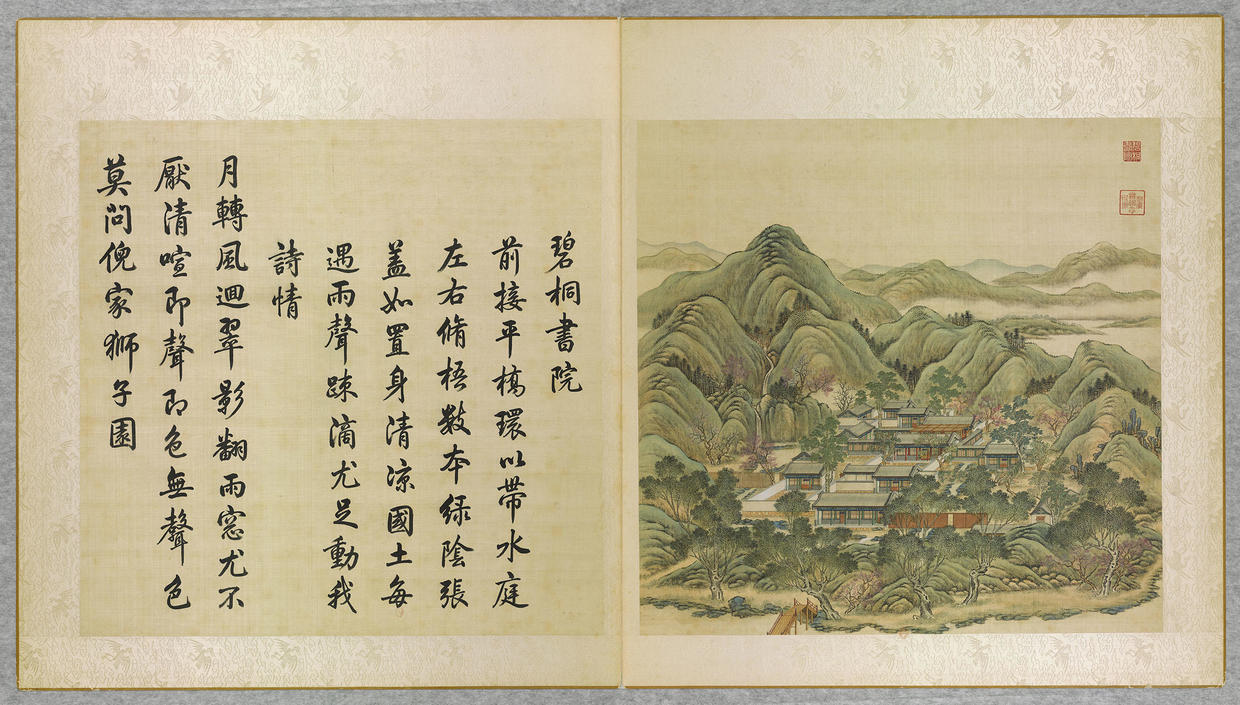 碧桐書院
前接平橋環以帶水庭
左右脩梧數本緑陰張
蓋如置身清凉國土每
遇雨聲踈滴尤足動我
詩情
月轉風迴翠影翻雨窓尤不
厭清喧即聲即色無聲色
莫問倪家獅子園